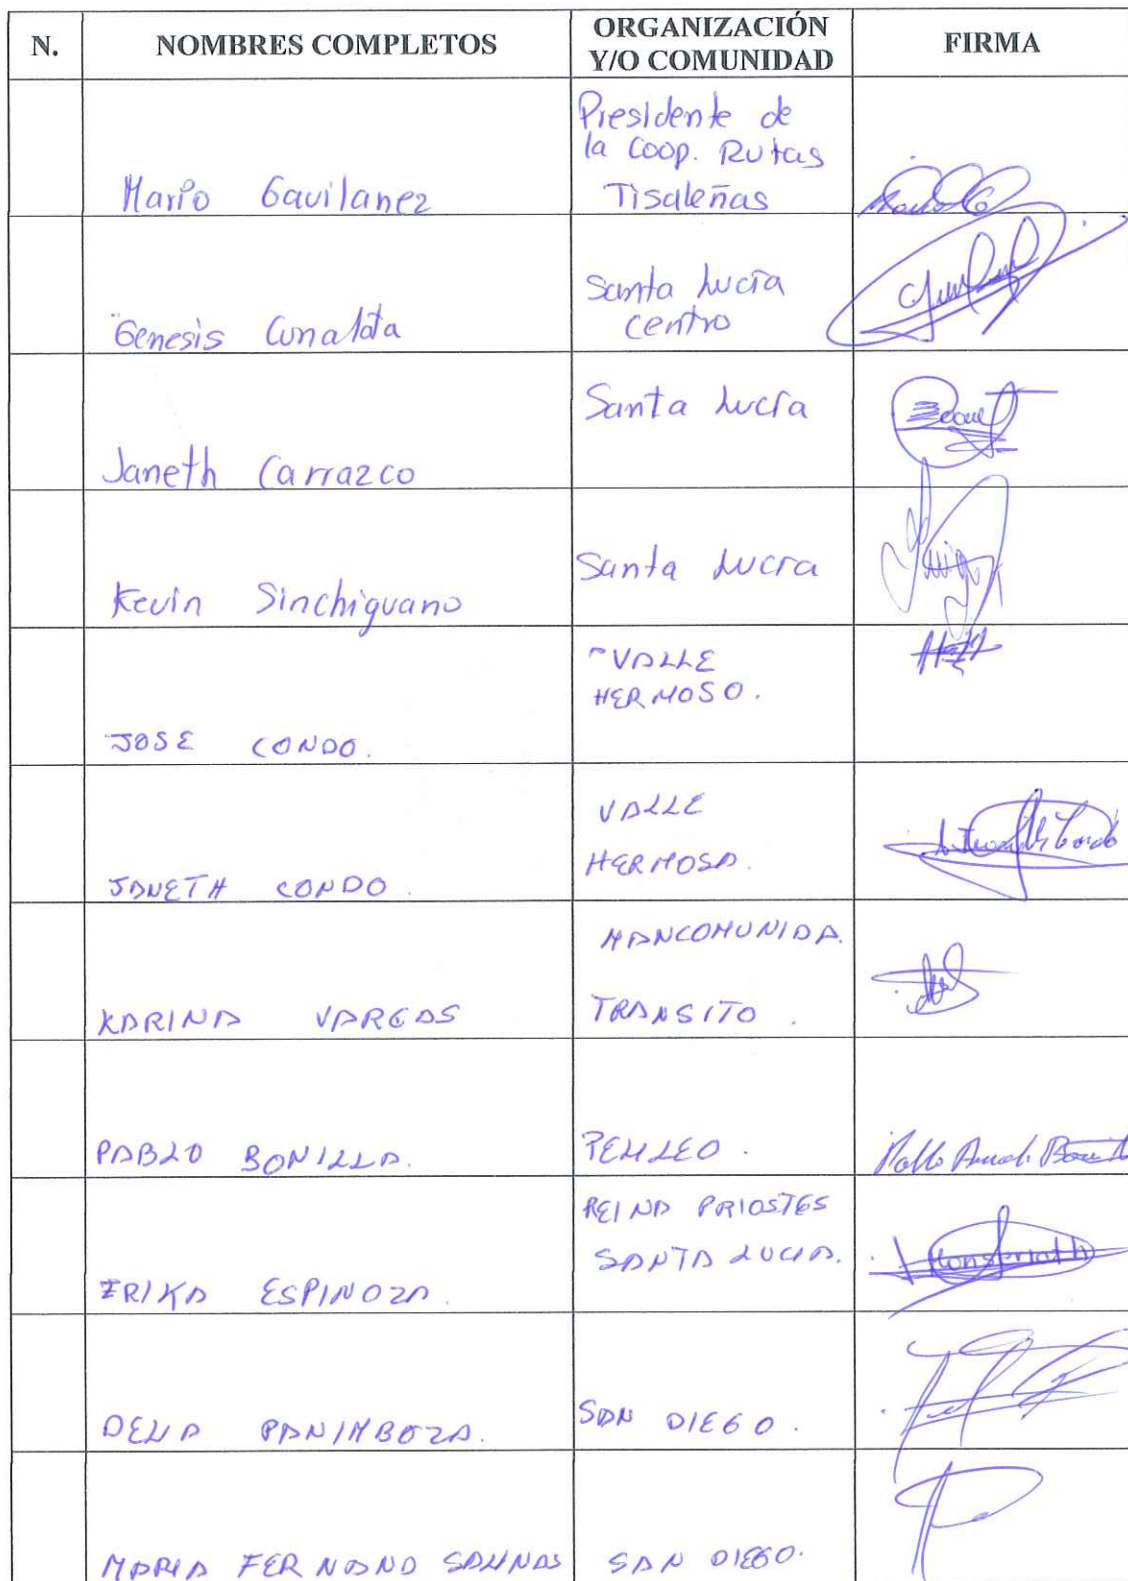 N.
NOMBRES COMPLETOS
ORGANIZACIÓN
Y/O COMUNIDAD
FIRMA
Mario Gavilanez
Presidente de
la Coop. Rutas
Tisaleñas
Genesis Cunalata
Santa Lucía
Centro
Janeth Carrazco
Santa Lucía
Kevin Sinchiguano
Santa Lucía
JOSE CONDO.
VALLE
HERMOSO.
JANETH CONDO.
VALLE
HERMOSA.
KARINA VARGAS
MANCOMUNIDA.
TRANSITO.
PABLO BONILLA.
PELILEO.
ERIKA ESPINOZA.
REINA PRIOSTES
SANTA LUCIA.
DELIA PANIMBOZA.
SAN DIEGO.
MARIA FERNAND SALINAS
SAN DIEGO.